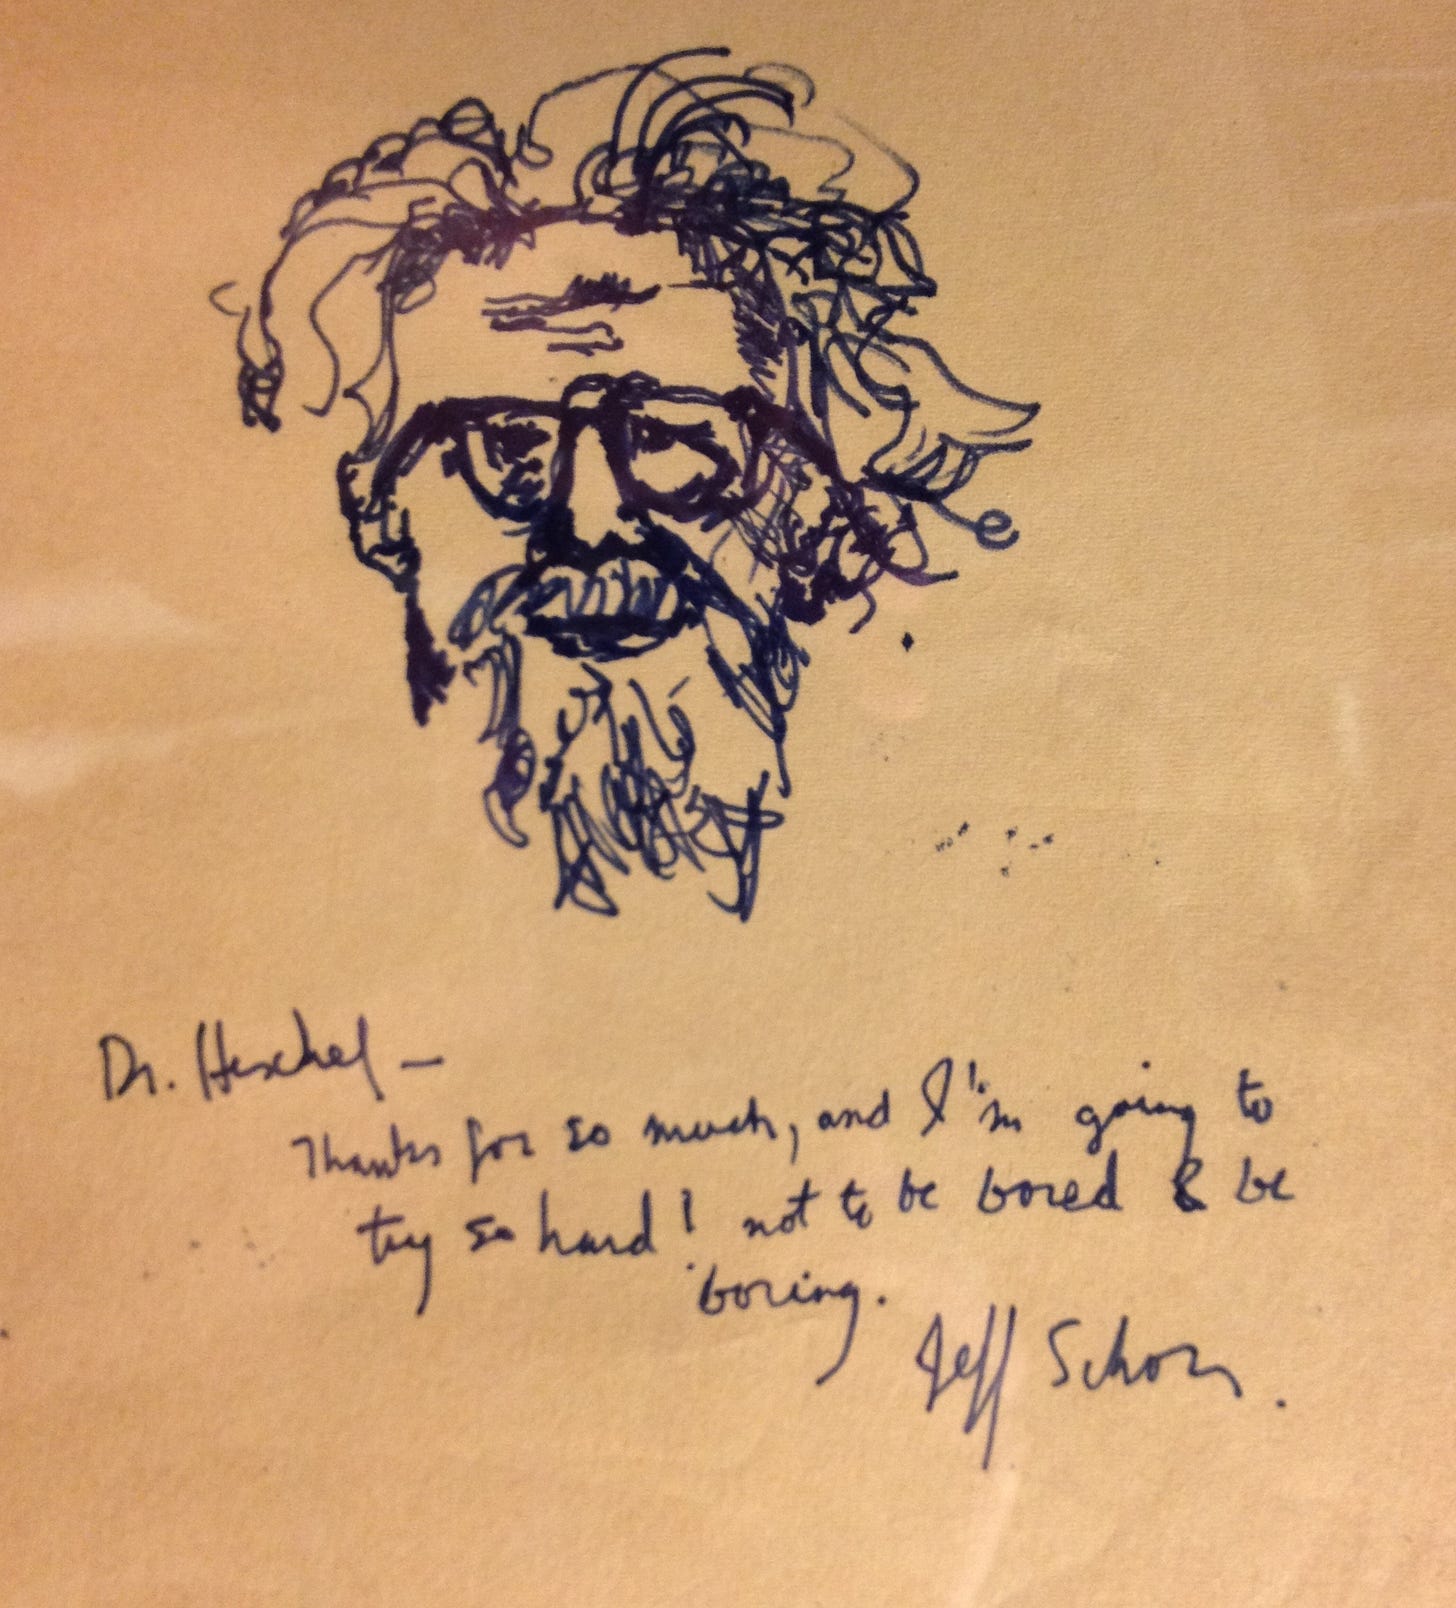 Dr. Heschel —
Thanks for so much, and I'm going to
try so hard! not to be bored & be
boring.
Jeff Schor.